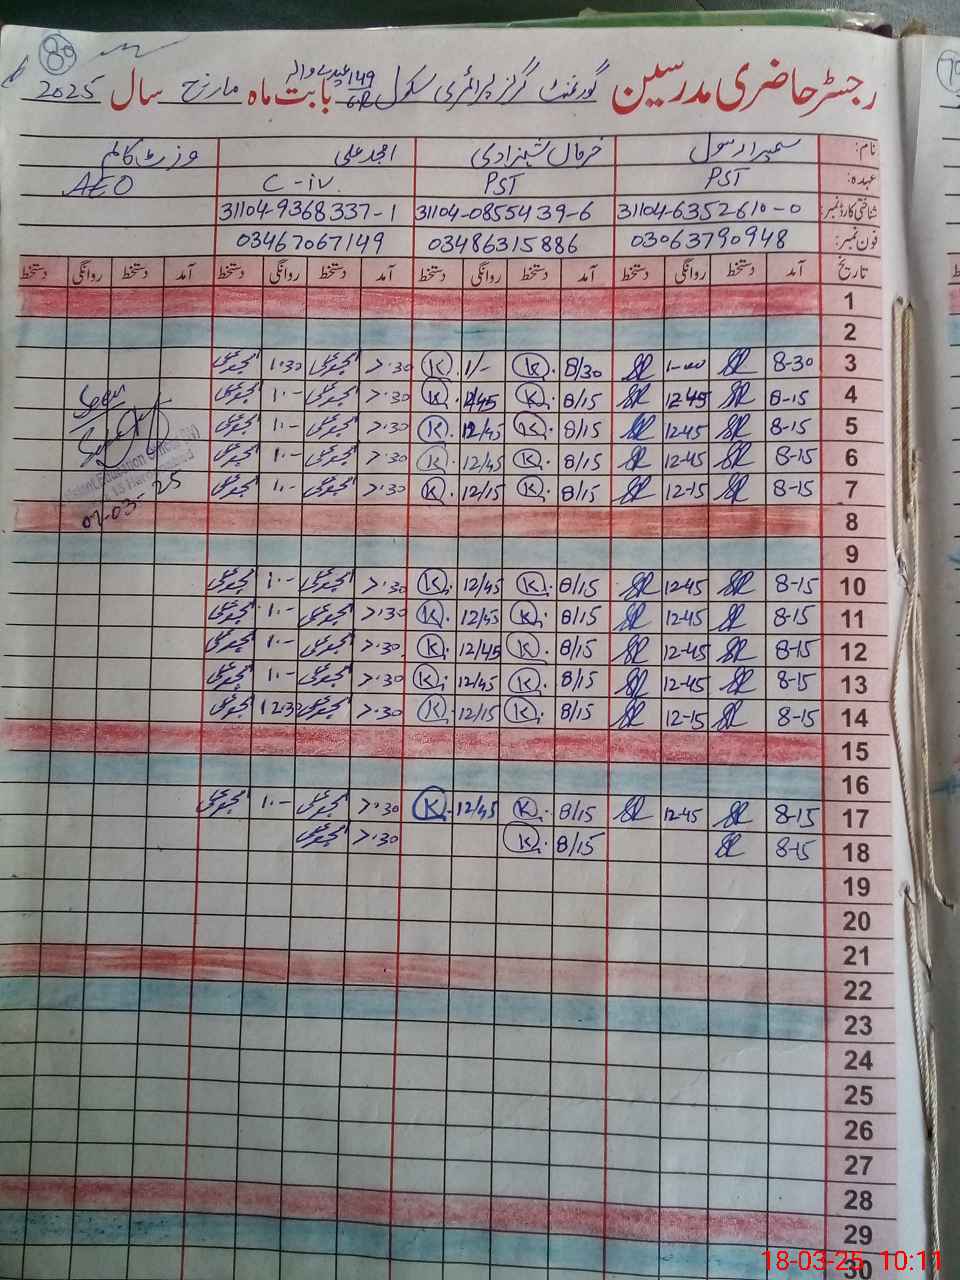 80
رجسٹر حاضری مدرسین گورنمنٹ گرلز پرائمری سکول 149/6R عیدے والہ بابت ماہ مارچ سال 2025
نام: سمیرا رسول خرماں شہزادی امجد علی وزٹ کالم
عہدہ: PST PST C-iv. AEO
شناختی کارڈ نمبر: 31104-6352610-0 31104-0855439-6 31104-9368337-1
فون نمبر: 03063790948 03486315886 03467067149
تاریخ آمد دستخط روانگی دستخط آمد دستخط روانگی دستخط آمد دستخط روانگی دستخط آمد دستخط روانگی دستخط
1
2
3 8-30 1-00 8/30 K. 1/- K. ۷.۳۰ امجد علی ۱.۳۰ امجد علی
4 8-15 12-45 8/15 K. 12/45 K. ۷.۳۰ امجد علی ۱.- امجد علی Seen
5 8-15 12-45 8/15 K. 12/45 K. ۷.۳۰ امجد علی ۱.- امجد علی
6 8-15 12-45 8/15 K. 12/45 K. ۷.۳۰ امجد علی ۱.- امجد علی
7 8-15 12-15 8/15 K. 12/15 K. ۷.۳۰ امجد علی ۱.- امجد علی 07-03-25
8
9
10 8-15 12-45 8/15 K. 12/45 K. ۷.۳۰ امجد علی ۱.- امجد علی
11 8-15 12-45 8/15 K. 12/45 K. ۷.۳۰ امجد علی ۱.- امجد علی
12 8-15 12-45 8/15 K. 12/45 K. ۷.۳۰ امجد علی ۱.- امجد علی
13 8-15 12-45 8/15 K. 12/45 K. ۷.۳۰ امجد علی ۱.- امجد علی
14 8-15 12-15 8/15 K. 12/15 K. ۷.۳۰ امجد علی ۱۲.۳۰ امجد علی
15
16
17 8-15 12-45 8/15 K. 12/45 K. ۷.۳۰ امجد علی ۱.- امجد علی
18 8-15 8/15 K. ۷.۳۰ امجد علی
19
20
21
22
23
24
25
26
27
28
29
30
18-03-25 10:11